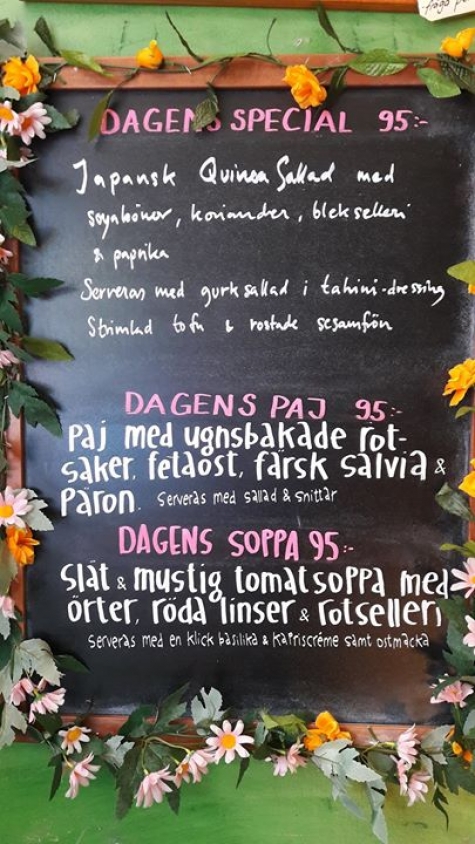 DAGENS SPECIAL 95:-
Japansk Quinoa Sallad med
soyabönor, koriander, blekselleri
& paprika
Serveras med gurksallad i tahini-dressing
Strimlad tofu & rostade sesamfrön
DAGENS PAJ 95:-
Paj med ugnsbakade rot-
saker, fetaost, färsk salvia &
Päron. Serveras med sallad & snittar
DAGENS SOPPA 95:-
Slät & mustig tomatsoppa med
örter, röda linser & rotselleri
Serveras med en klick basilika & kapriscréme samt ostmacka